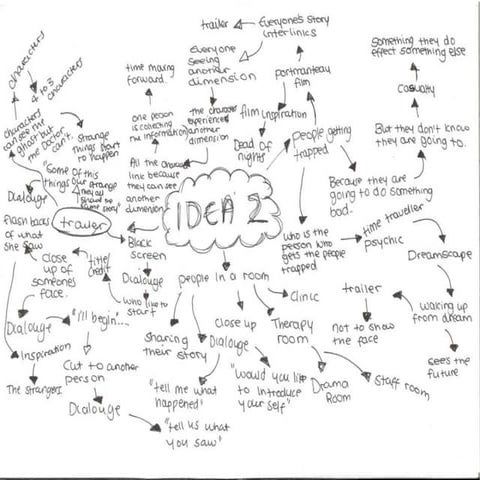 trailer
Everyone's story
interlinks
Everyone
seeing
another
dimension
portmanteau
film
Something they do
effect something else
Casualty
But they don't know
they are going to.
Because they are
going to do something
bad.
People getting
trapped
film inspiration
Dead of
nights
the character
experiences
another
dimension
time moving
forward.
one person
is collecting
the information
All the characters
link because
they can see
another
dimension
IDEA 2
characters
4 to 5
characters
characters
can see the
ghost but
Doctor
can't.
strange
things start
to happen
"Some of this
things
strange
story"
Dialouge
trailer
flash back
of what
she saw
close
up of
someones
face.
title
credit
Black
screen
Dialouge
who like to
start
Dialouge
"I'll begin"...
Inspiration
The strangers
Cut to another
person
Dialouge
"tell us what
you saw"
people in a room
sharing
their story
"tell me what
happened"
close up
Dialouge
"would you like
to introduce
your self"
Clinic
Therapy
room
Drama
Room
Staff room
who is the
person who
gets the people
trapped
time traveller
psychic
Dreamscape
waking up
from dream
sees the
future
trailer
not to show
the face